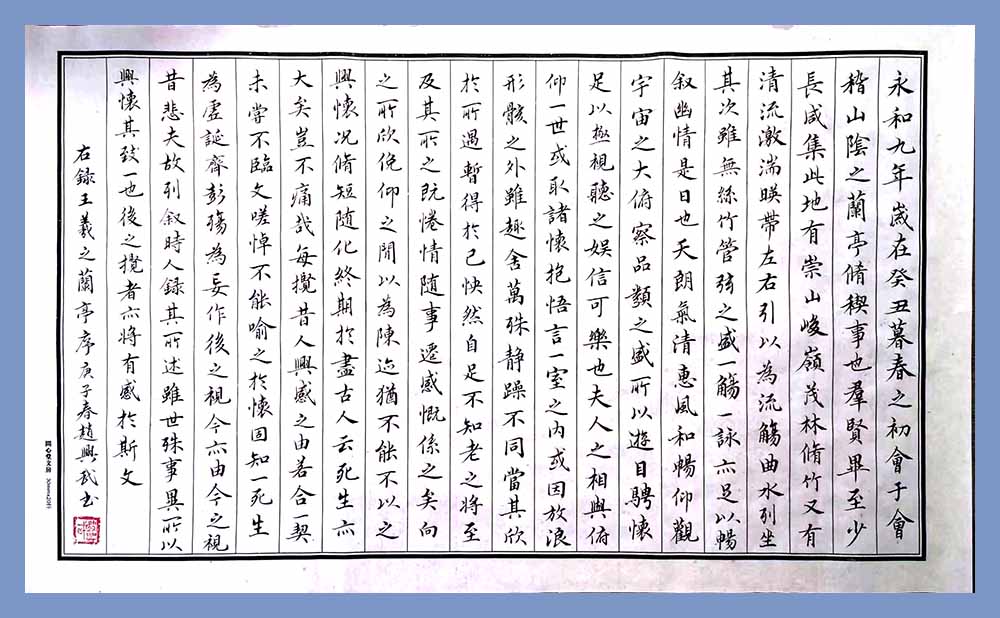 永和九年歲在癸丑暮春之初會于會
稽山陰之蘭亭脩稧事也羣賢畢至少
長咸集此地有崇山峻嶺茂林脩竹又有
清流激湍暎帶左右引以為流觴曲水列坐
其次雖無絲竹管弦之盛一觴一詠亦足以暢
叙幽情是日也天朗氣清惠風和暢仰觀
宇宙之大俯察品類之盛所以遊目騁懷
足以極視聽之娛信可樂也夫人之相與俯
仰一世或取諸懷抱悟言一室之内或因放浪
形骸之外雖趣舍萬殊静躁不同當其欣
於所過暫得於己怏然自足不知老之將至
及其所之既惓情隨事遷感慨係之矣向
之所欣俛仰之閒以為陳迹猶不能不以之
興懷况脩短隨化終期於盡古人云死生亦
大矣豈不痛哉每攬昔人興感之由若合一契
未甞不臨文嗟悼不能喻之於懷固知一死生
為虚誕齊彭殤為妄作後之視今亦由今之視
昔悲夫故列叙時人録其所述雖世殊事異所以
興懷其致一也後之攬者亦將有感於斯文
右録王羲之蘭亭序庚子春趙興武书